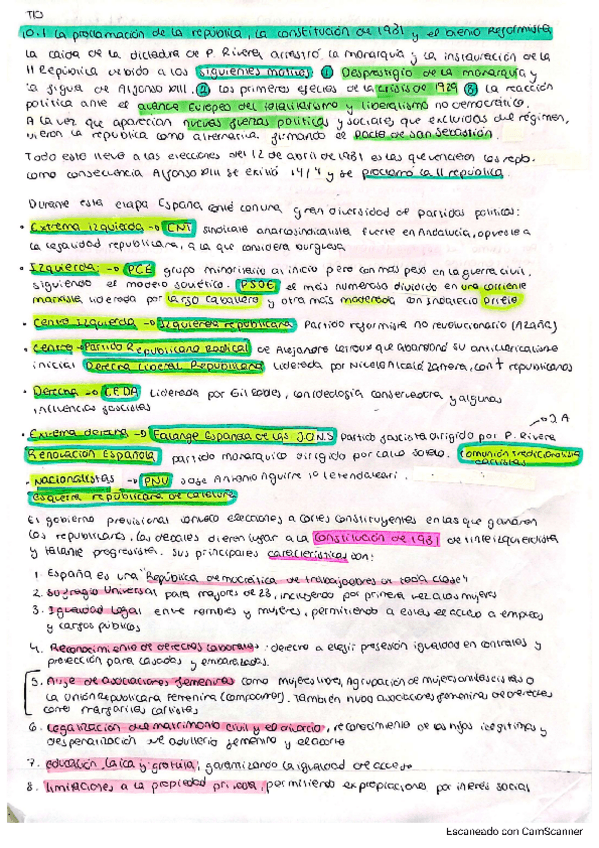 T10
10.1 La proclamación de la república, la constitución de 1931 y el bienio Reformista
La caída de la dictadura de P. Rivera arrastró la monarquía y la instauración de la
II República debido a los siguientes motivos: ① Desprestigio de la monarquía y
la figura de Alfonso XIII. ② Los primeros efectos de la crisis de 1929 ③ La reacción
política ante el avance Europeo del totalitarismo y liberalismo no democrático.
A la vez que aparecían nuevas fuerzas políticas y sociales que excluidas del régimen,
vieron la república como alternativa, firmando el pacto de San Sebastián.
Todo esto llevó a las elecciones del 12 de abril de 1931 en las que vencieron los repb.
como consecuencia Alfonso XIII se exilió 14/4 y se proclamó la II república.
Durante esta etapa España contó con una gran diversidad de partidos políticos:
• Extrema izquierda → CNT sindicato anarcosindicalista fuerte en Andalucía, opuesto a
la legalidad republicana, a la que considera burguesa
• Izquierda: → PCE grupo minoritario al inicio pero con más peso en la guerra civil,
siguiendo el modelo soviético. PSOE el más numeroso dividido en una corriente
marxista liderada por Largo Caballero y otra más moderada con Indalecio Prieto
• Centro Izquierda → Izquierda republicana Partido reformista no revolucionario (Azaña)
• Centro → Partido Republicano Radical de Alejandro Lerroux que abandonó su anticlericalismo
inicial Derecha Liberal Republicana liderada por Niceto Alcalá Zamora, con + republicanos
• Derecha → CEDA Liderada por Gil Robles, con ideología conservadora y algunas
influencias fascistas
→ J A
• Extrema derecha → Falange Española de las J.O.N.S partido fascista dirigido por P. Rivera
Renovación Española partido monárquico dirigido por Calvo Sotelo. Comunión tradicionalista
carlistas
• Nacionalistas → PNV José Antonio Aguirre
Esquerra republicana de Cataluña
El gobierno provisional convocó elecciones a cortes constituyentes en las que ganaron
los republicanos, los cuales dieron lugar a la Constitución de 1931 de tinte izquierdista
y talante progresista. Sus principales características son:
1. España es una "República democrática de trabajadores de toda clase"
2. Sufragio Universal para mayores de 23, incluyendo por primera vez a las mujeres
3. Igualdad Legal entre hombres y mujeres, permitiendo a estas el acceso a empleos
y cargos públicos
4. Reconocimiento de derechos laborales: derecho a elegir profesión igualdad en contratos y
protección para casadas y embarazadas.
5. Auge de asociaciones femeninas como mujeres libres, Agrupación de mujeres antifascistas o
la Unión Republicana Femenina (Campoamor). También hubo asociaciones femeninas de derechas
como margaritas carlistas
6. Legalización del matrimonio civil y el divorcio, reconocimiento de los hijos ilegítimos y
despenalización del adulterio femenino y el aborto
7. educación laica y gratuita, garantizando la igualdad de acceso
8. Limitaciones a la propiedad privada, permitiendo expropiaciones por interés social
Escaneado con CamScanner